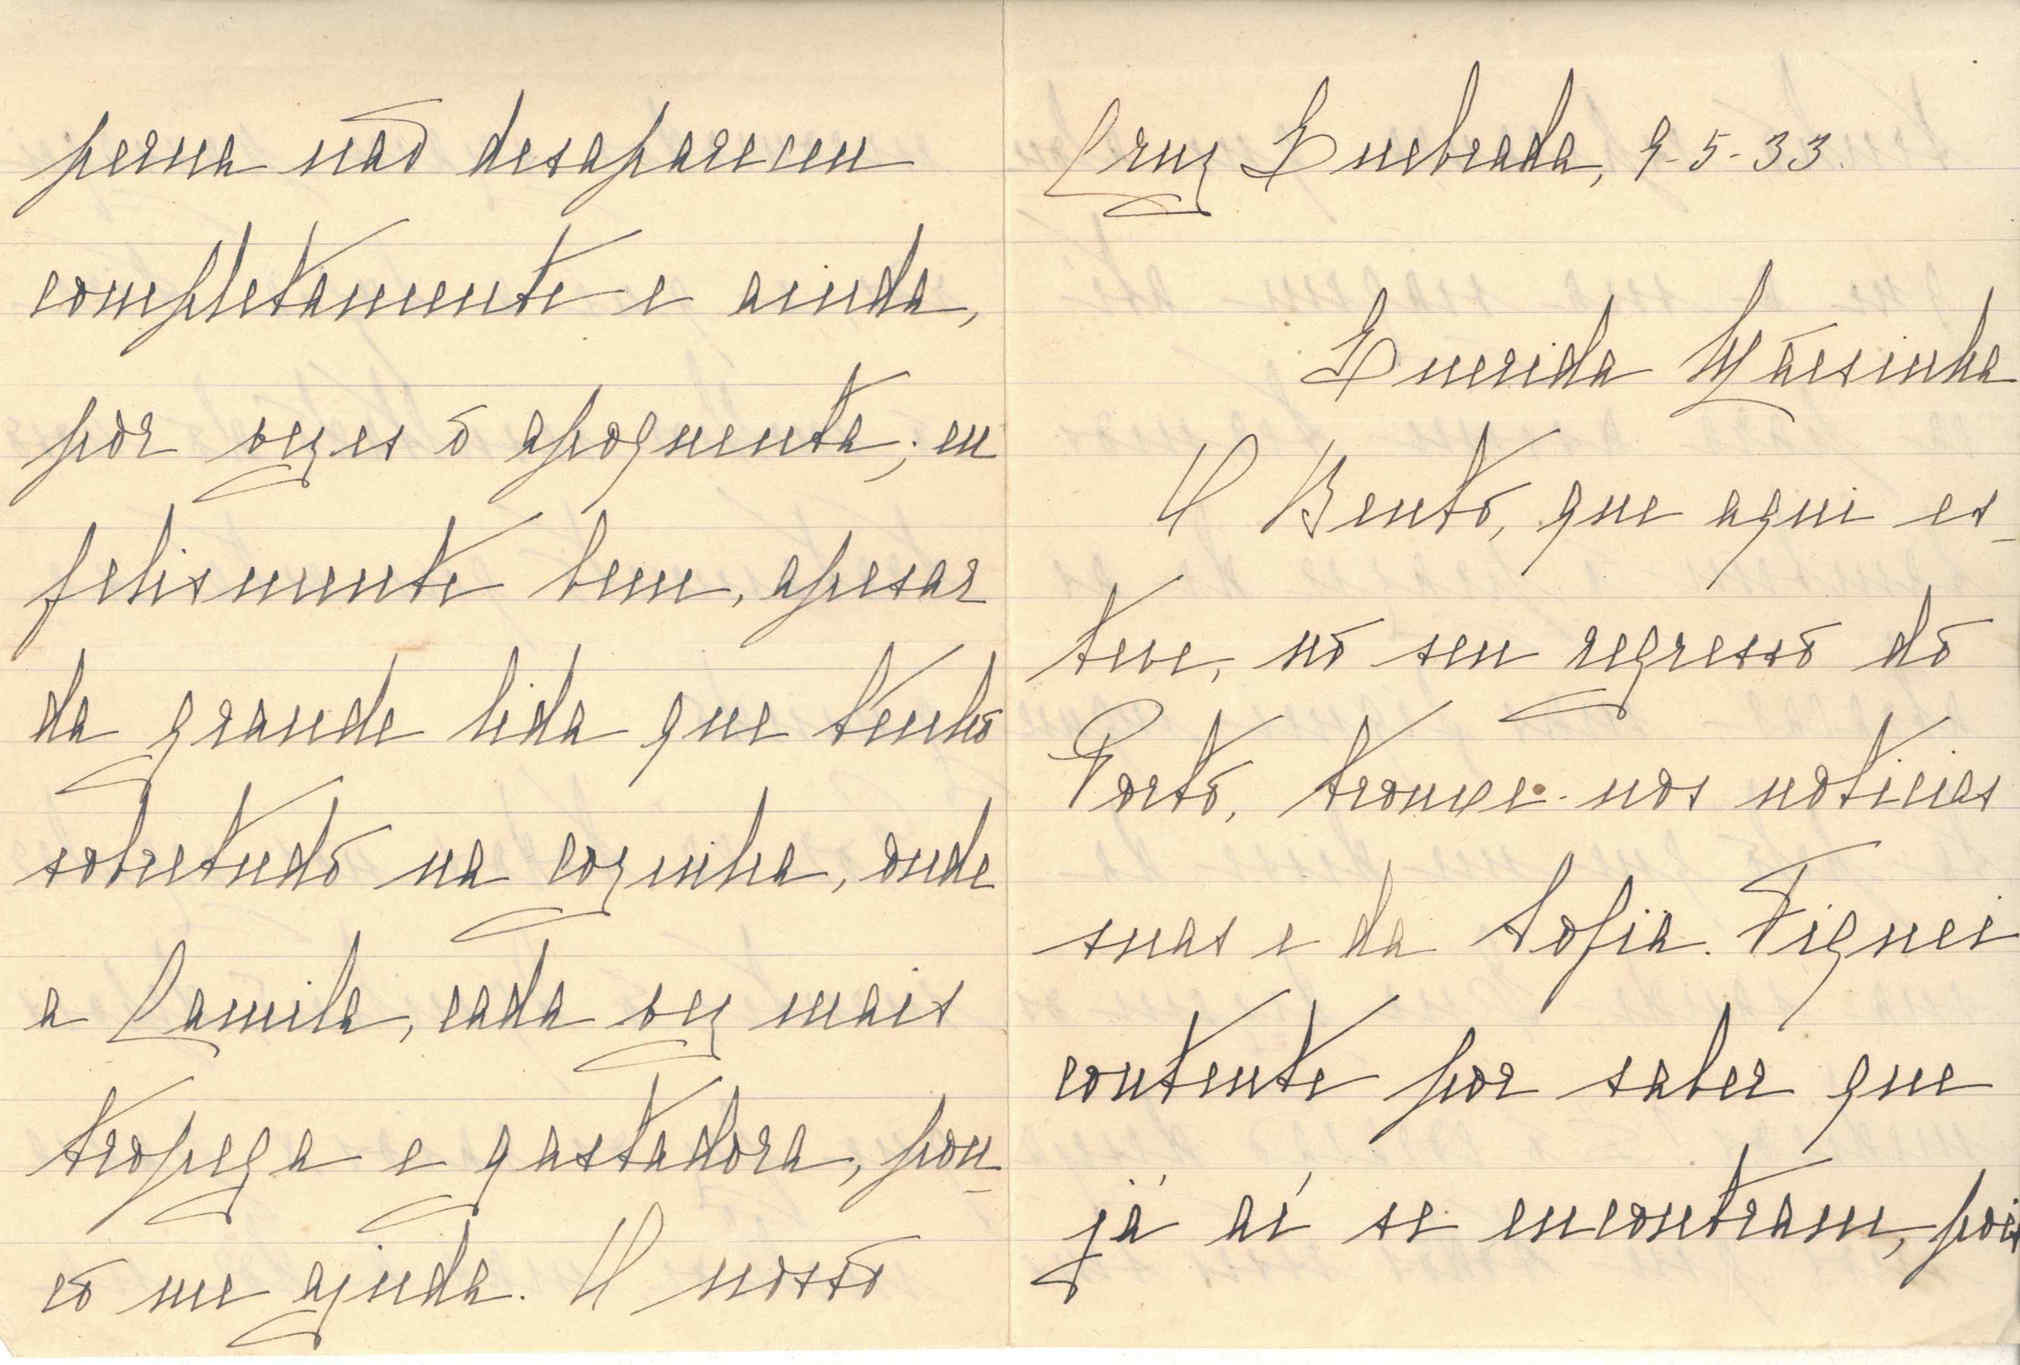 Cruz Quebrada, 9-5-33.
Querida Mãesinha
O Bento, que aqui es-
teve, no seu regresso do
Porto, trouxe-nos noticias
suas e da Sofia. Fiquei
contente por saber que
já aí se encontram, pois
perna não desapareceu
completamente e ainda,
por vezes o apoquenta; eu
felismente bem, apesar
da grande lida que tenho
sobretudo na cozinha, onde
a Camila, cada vez mais
tropega e gastadora, pou-
co me ajuda. O nosso